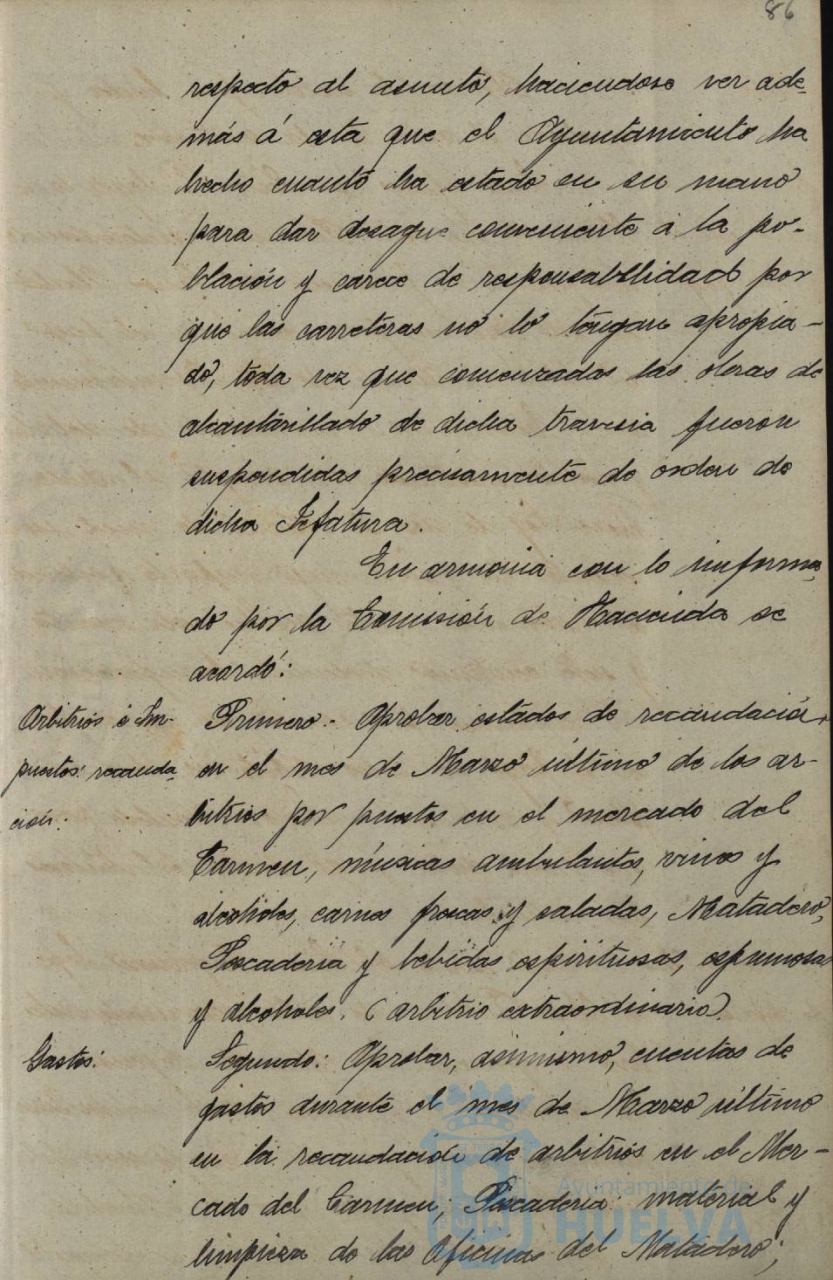 86
respecto al asunto, haciendose ver ade-
más á esta que el Ayuntamiento ha
hecho cuanto ha estado en su mano
para dar desague conveniente a la po-
blación y carece de responsabilidad por
que las carreteras no lo tengan apropia-
do, toda vez que comenzadas las obras de
alcantarillado de dicha travesia fueron
suspendidas precisamente de orden de
dicha Jefatura.
En armonia con lo informa-
do por la Comisión de Hacienda se
acordó:
Arbitrios é Im-
puestos: recauda-
ción.
Primero.- Aprobar estados de recaudación
en el mes de Marzo último de los ar-
bitrios por puestos en el mercado del
Carmen, músicas ambulantes, vinos y
alcoholes, carnes frescas y saladas, Matadero,
Pescaderia y bebidas espirituosas, espumosas
y alcoholes. (arbitrio extraordinario)
Gastos:
Segundo: Aprobar, asimismo, cuentas de
gastos durante el mes de Marzo último
en la recaudación de arbitrios en el Mer-
cado del Carmen; Pescaderia material y
limpieza de las Oficinas del Matadero;
Ayuntamiento de
HUELVA